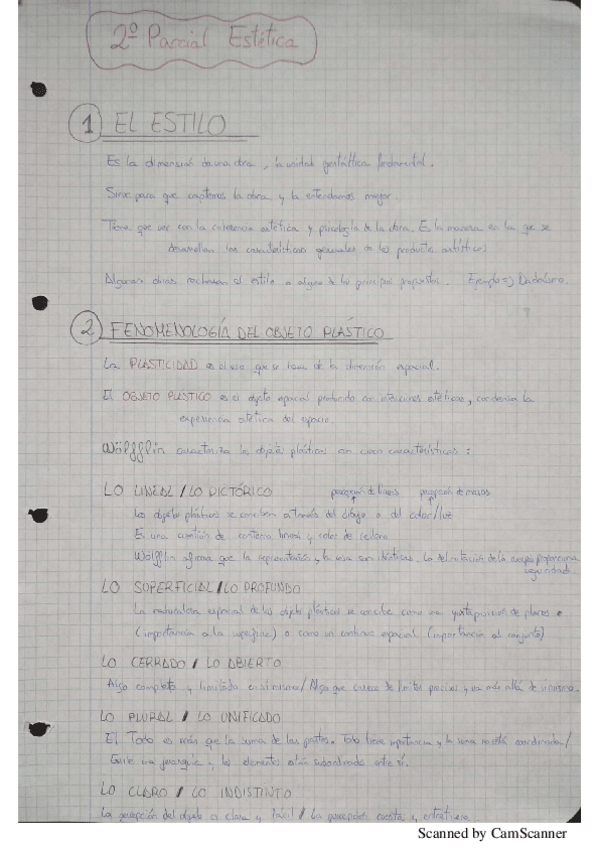 2º Parcial Estética
1 EL ESTILO
Es la dimensión de una obra, la unidad gestáltica fundamental.
Sirve para que captemos la obra y la entendamos mejor.
Tiene que ver con la coherencia estética y psicología de la obra. Es la manera en la que se
desarrollan las características generales de los productos artísticos
Algunas obras rechazan el estilo a alguno de los principios propuestos. Ejemplo => Dadaísmo.
2 FENOMENOLOGÍA DEL OBJETO PLÁSTICO
La PLASTICIDAD es el uso que se hace de la dimensión espacial.
El OBJETO PLÁSTICO es el objeto espacial producido con intenciones estéticas, condensa la
experiencia estética del espacio.
Wölfflin caracteriza los objetos plásticos con cinco características:
LO LINEAL / LO PICTÓRICO percepción de líneas percepción de masas
Los objetos plásticos se conciben a través del dibujo o del color/luz
Es una cuestión de contorno lineal y color de
Wölfflin afirma que la representación y la cosa son idénticas. La delimitación de los cuerpos proporciona
seguridad
LO SUPERFICIAL / LO PROFUNDO
La naturaleza espacial de los objetos plásticos se concibe como una yuxtaposición de planos
(importancia a la superficie) o como un continuo espacial (importancia al conjunto)
LO CERRADO / LO ABIERTO
Algo completo y limitado en sí mismo / Algo que carece de límites precisos y va más allá de sí mismo.
LO PLURAL / LO UNIFICADO
El Todo es más que la suma de las partes. Todo tiene importancia y la suma coordinadas /
Existe una jerarquía y los elementos están subordinados entre sí.
LO CLARO / LO INDISTINTO
La percepción del objeto es clara y fácil / La percepción cuesta y
Scanned by CamScanner